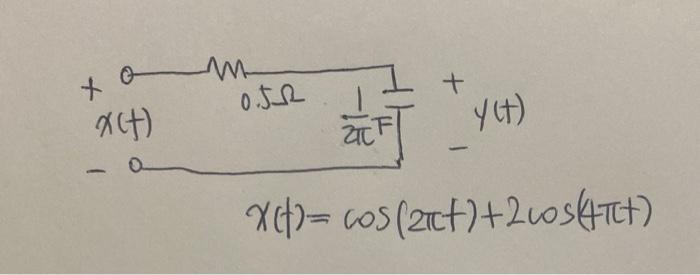 +
x(t)
-
0.5Ω
1/2π F
+
y(t)
-
x(t) = cos(2πt) + 2cos(4πt)